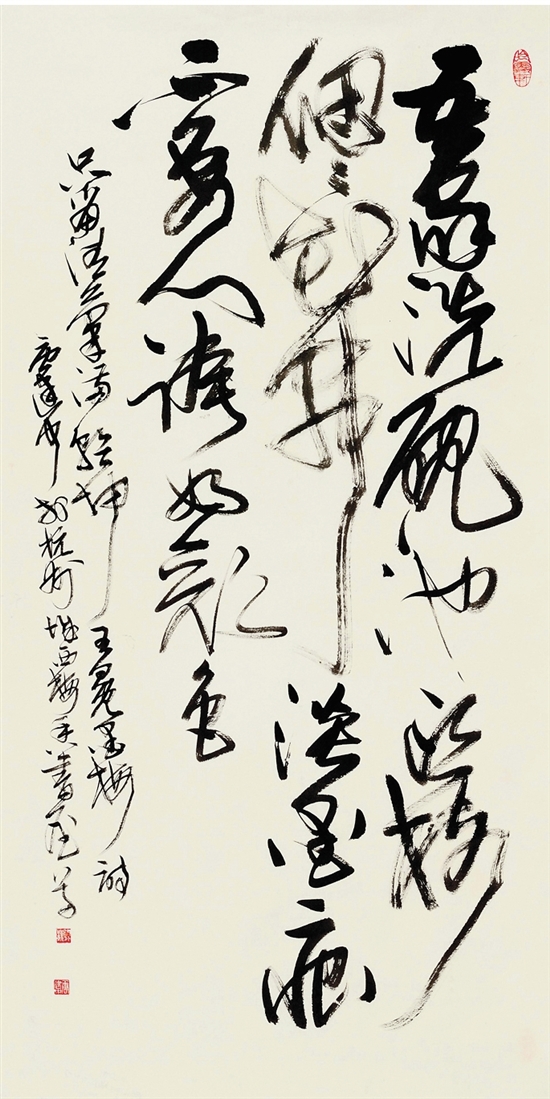 吾家洗硯池頭樹
個個花開淡墨痕
不要人誇好顏色
只留清氣滿乾坤 王冕墨梅詩
於杭州城西梅香書屋